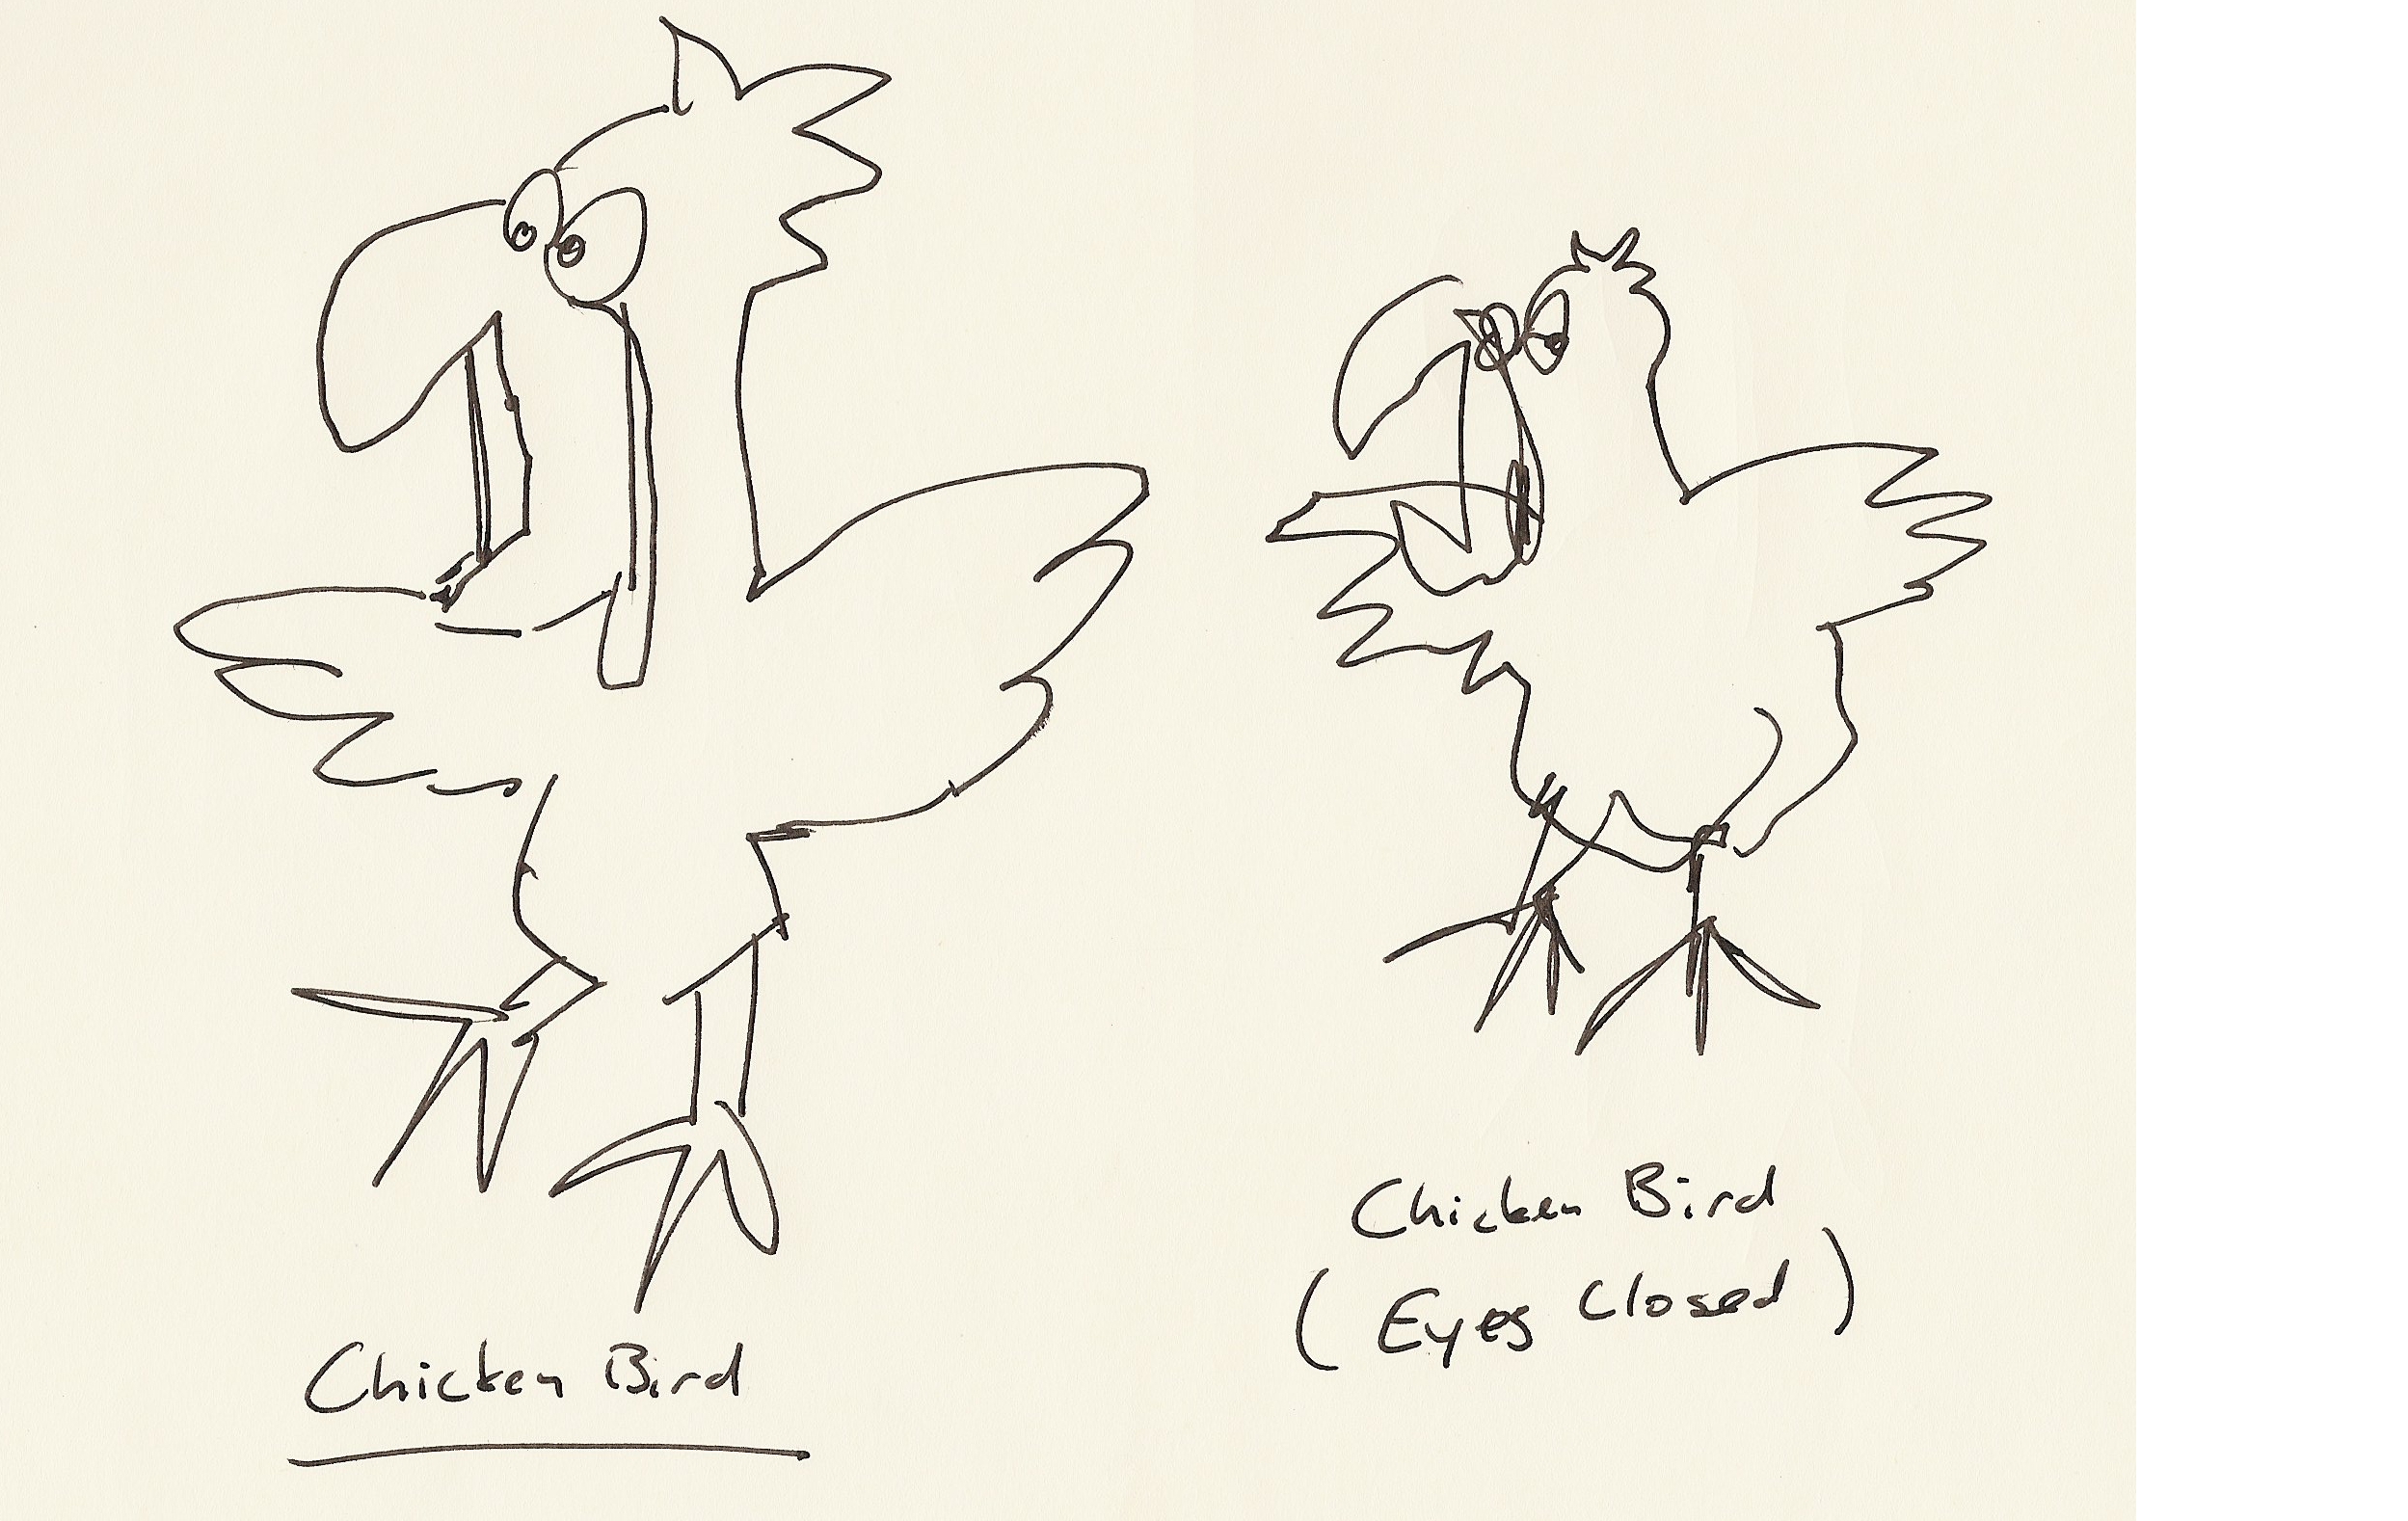 Chicken Bird
Chicken Bird
(Eyes Closed)